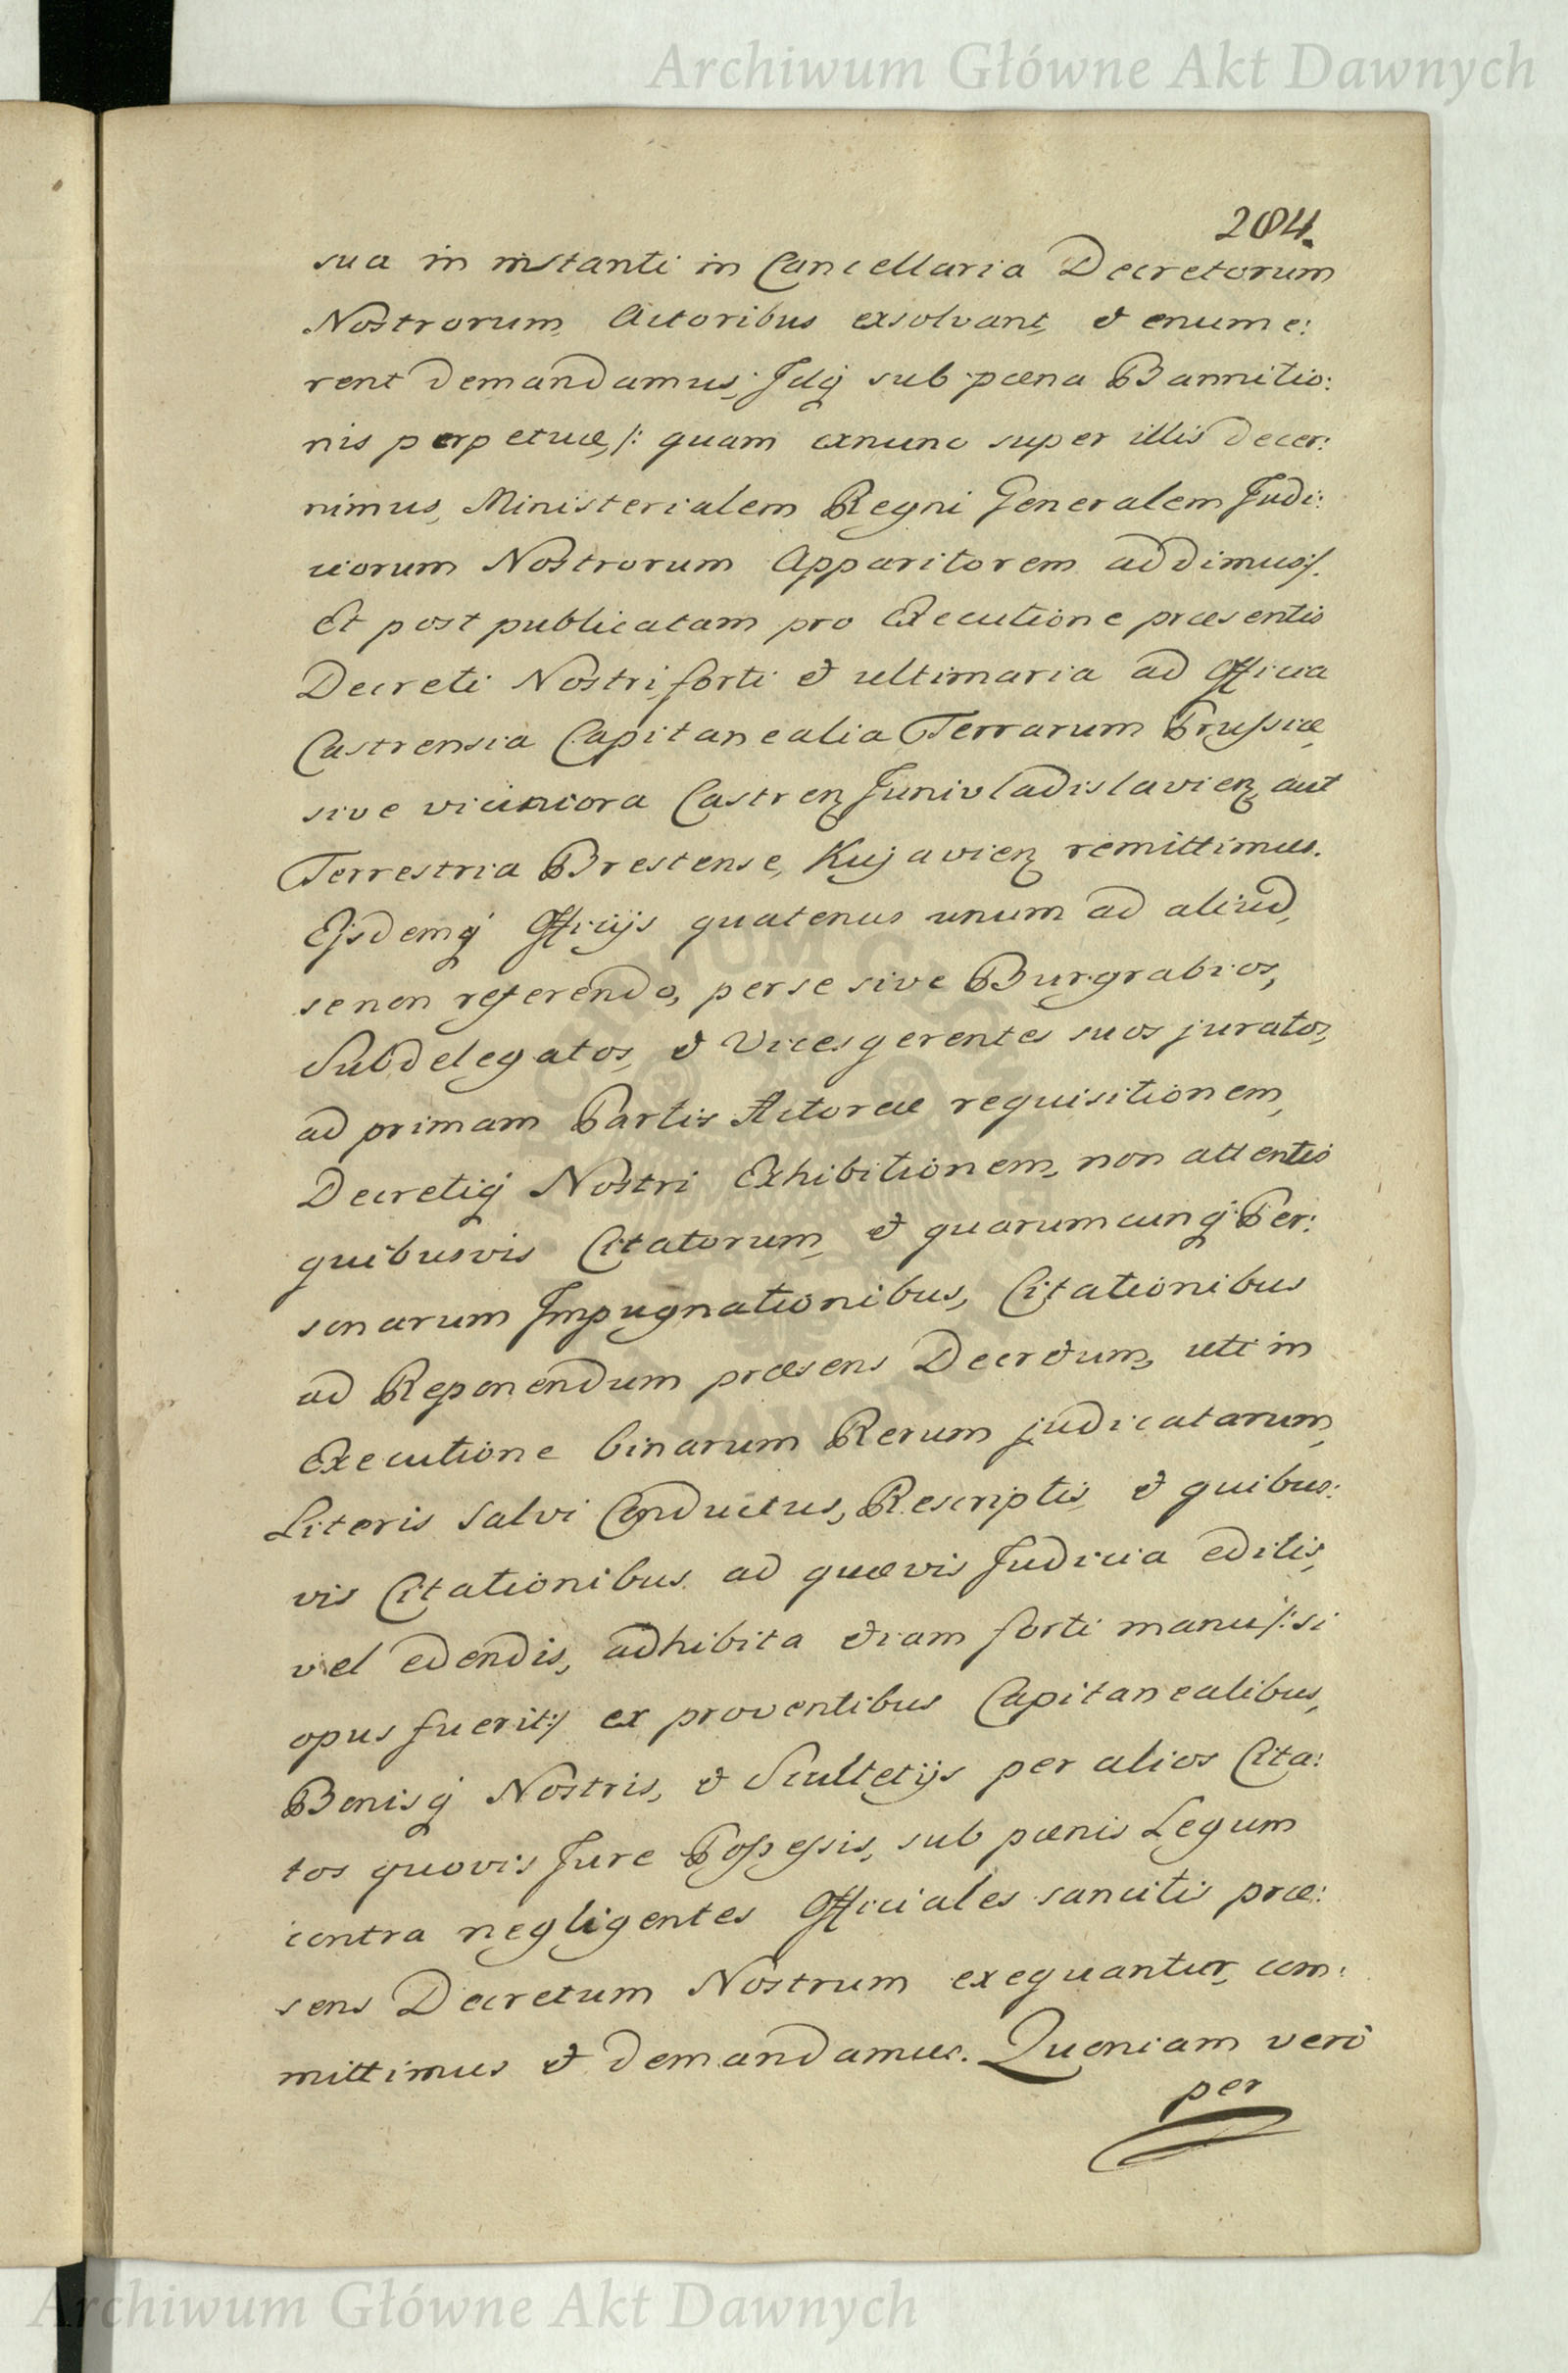 Archiwum Główne Akt Dawnych
204.
sua in instanti in Cancellaria Decretorum
Nostrorum, Actoribus exsolvant, et enume:
rent demandamus, Idq sub pæna Bannitio:
nis perpetuæ, /: quam exnunc super illis decer:
nimus, Ministerialem Regni Generalem Judi:
ciorum Nostrorum Apparitorem addimus :/.
Et post publicatam pro Executione præsentis
Decreti Nostri, forti et ultimaria ad Officia
Castrensia Capitanealia Terrarum Prussiæ,
sive viciniora Castren Junivladislavien, aut
Terrestria Brestense, Kujavien remittimus.
Ejsdemq Officijs quatenus unum ad aliud,
se non referendo, per se sive Burgrabios,
Subdelegatos, et Vicesgerentes suos juratos,
ad primam Partis Actoreæ requisitionem,
Decretiq Nostri Exhibitionem, non attentis
quibusvis Citatorum, et quarumcunq Per:
sonarum Impugnationibus, Citationibus
ad Reponendum præsens Decretum, uti in
Executione binarum Rerum judicatarum,
Literis Salvi Conductus, Rescriptis, et quibus:
vis Citationibus ad quævis Judicia editis,
vel edendis, adhibita etiam forti manu /: si
opus fuerit :/ ex proventibus Capitanealibus,
Bonisq Nostris, et Scultetijs per alios Cita:
tos quovis Jure Possessis, sub pænis Legum
contra negligentes Officiales sancitis præ:
sens Decretum Nostrum exequantur, com:
mittimus et demandamus. Quoniam verò
per
Archiwum Główne Akt Dawnych